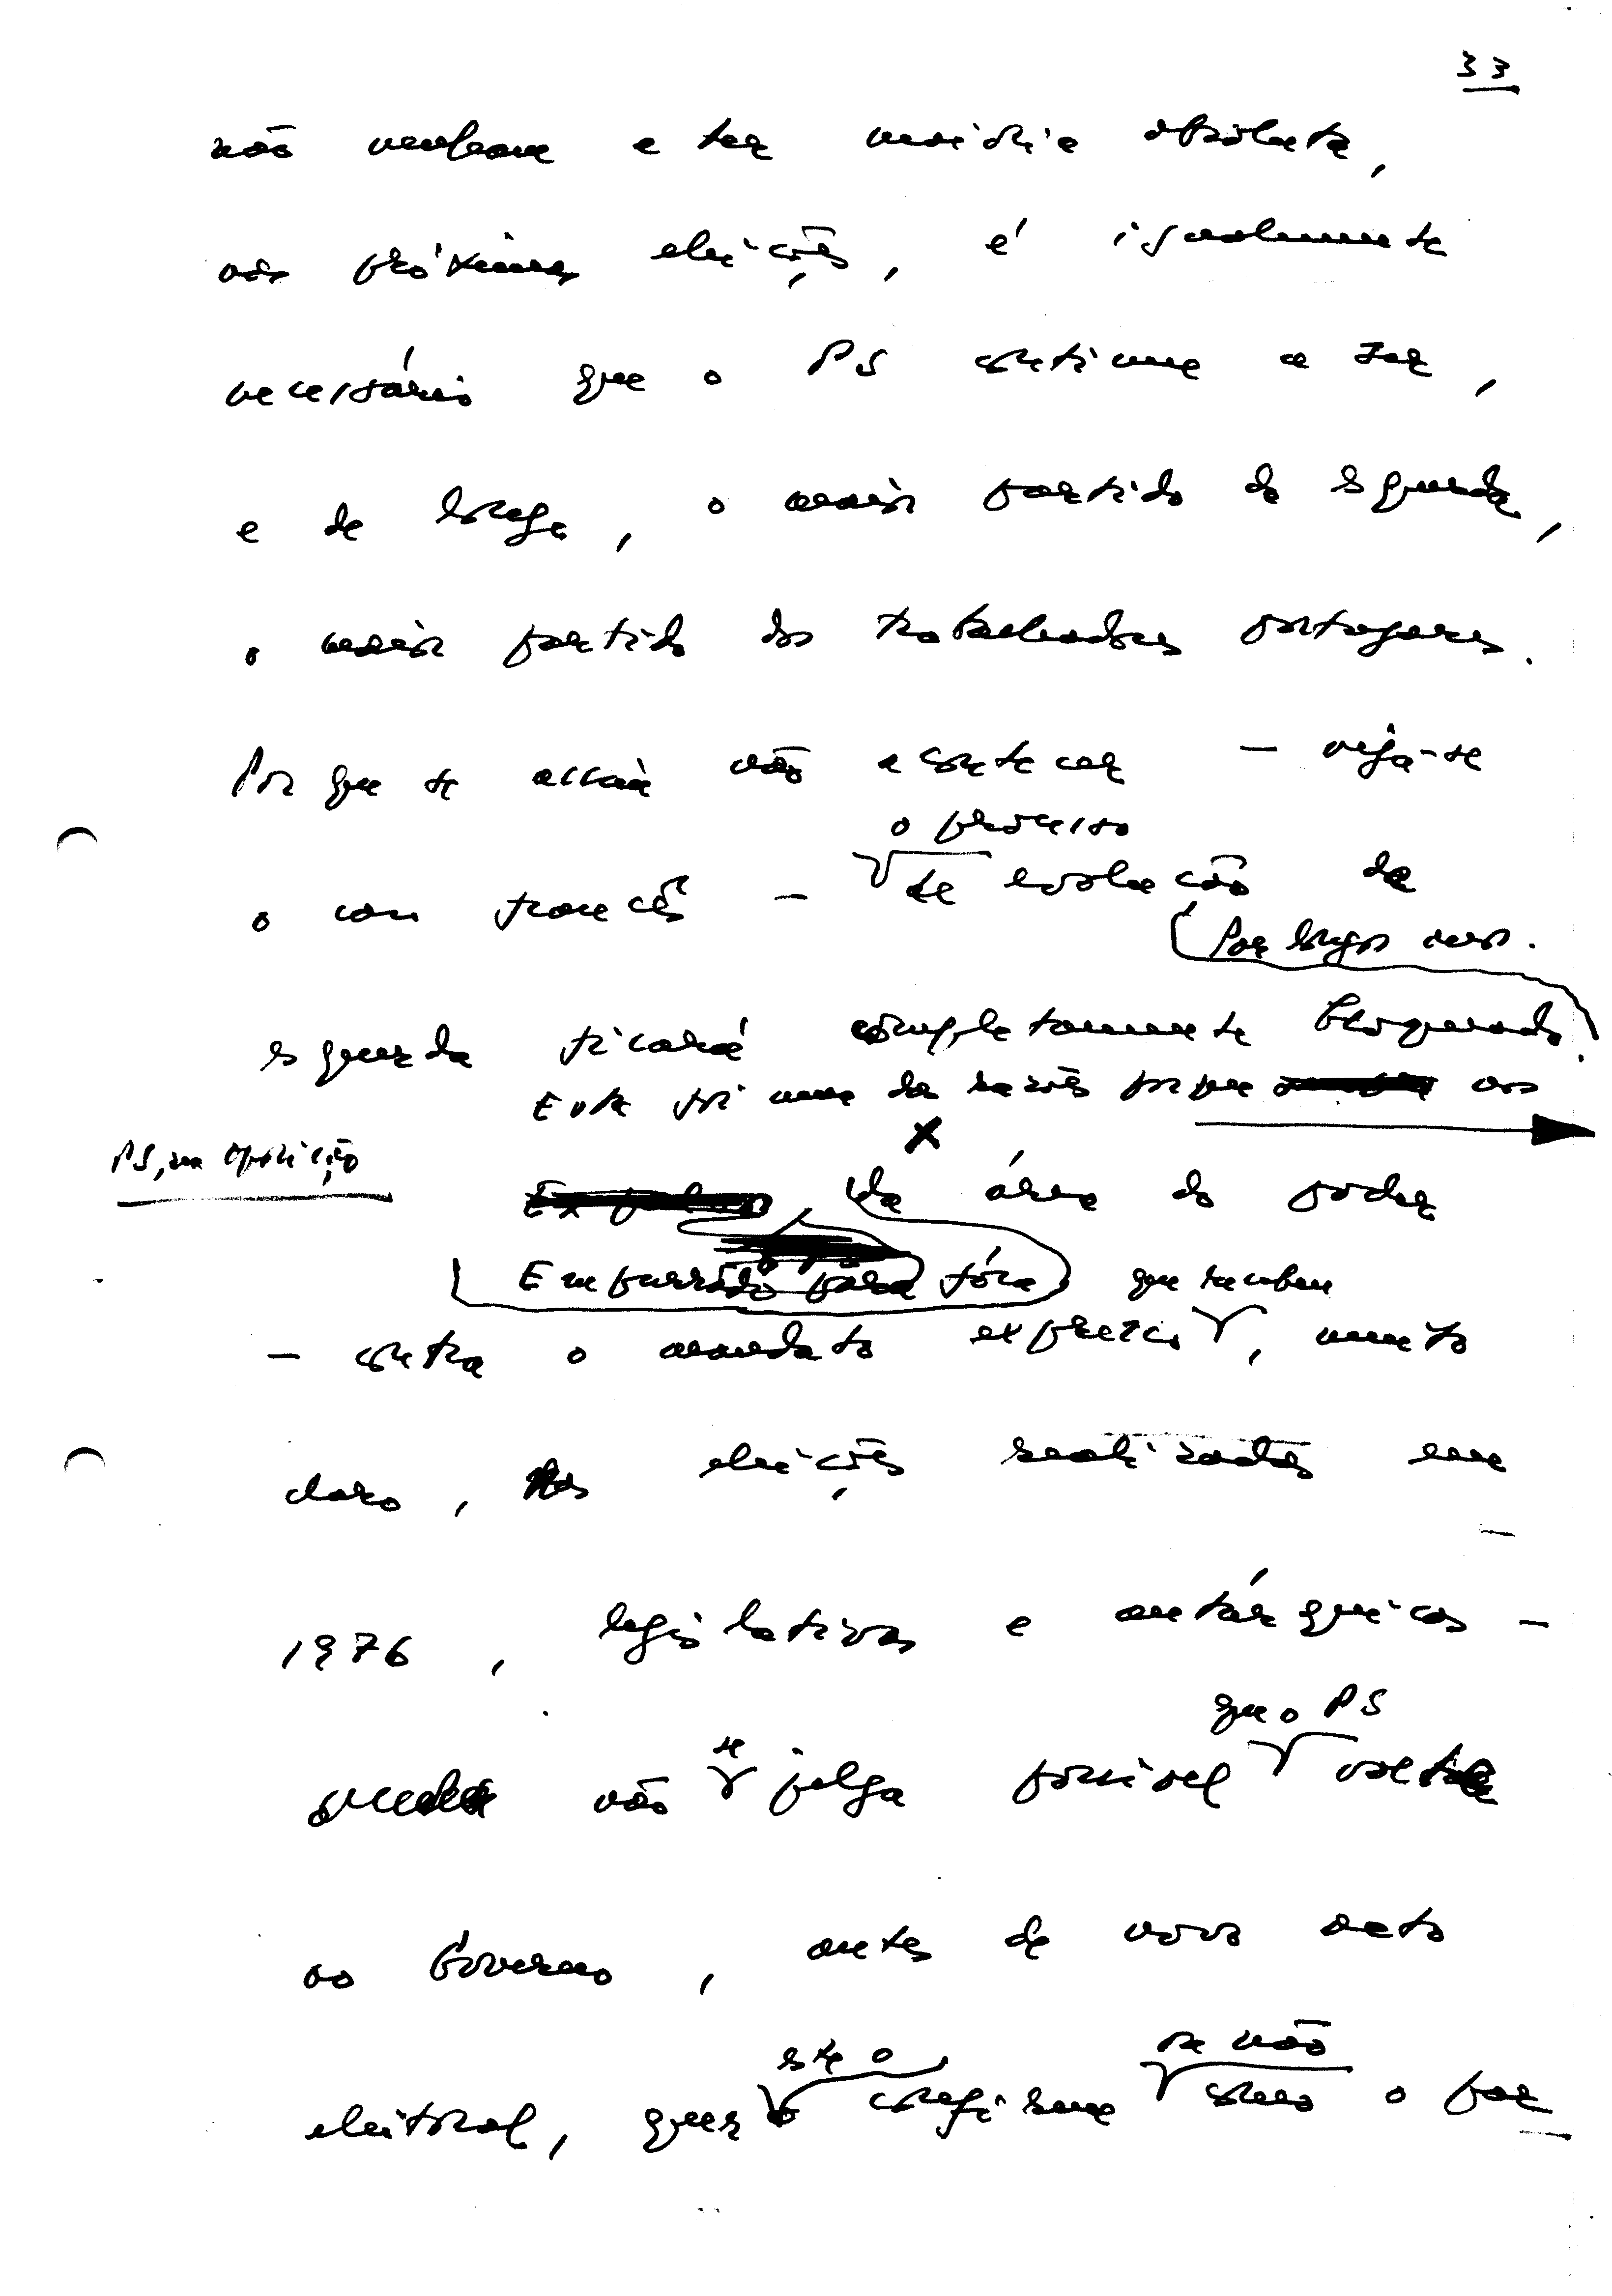 33
não venham a ter maioria absoluta,
nas próximas eleições, é igualmente
necessário que o PS continue a ser,
e de longe, o maior partido da esquerda,
o maior partido dos trabalhadores portugueses.
Porque se assim não acontecer — veja-se
o processo
o caso francês — de evolução da
por longos anos.
esquerda ficará completamente bloqueado.
Esta foi uma das razões porque nos
PS, na oposição
da área do poder
Empurrado para fora que recebeu
— contra o mandato expresso, muito
claro, nas eleições realizadas em
1976, legislativas e autárquicas —
que o PS
não se julga possível
ao Governo, antes de novo acto
este o se não
eleitoral, quer confirme como o par